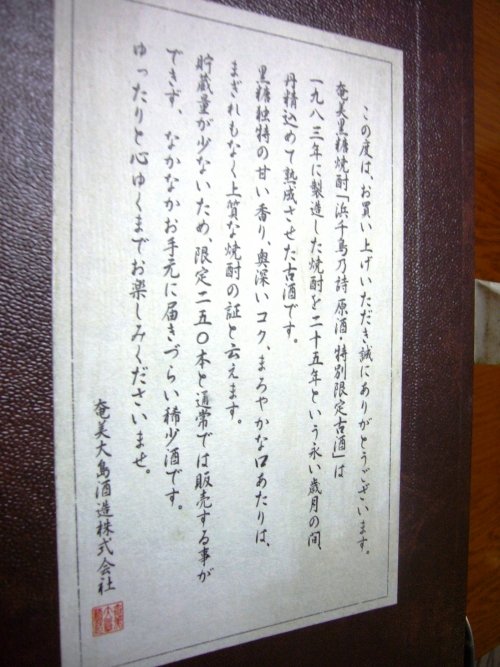 この度は、お買い上げいただき誠にありがとうございます。
奄美黒糖焼酎「浜千鳥乃詩 原酒・特別限定古酒」は
一九八三年に製造した焼酎を二十五年という永い歳月の間、
丹精込めて熟成させた古酒です。
黒糖独特の甘い香り、奥深いコク、まろやかな口あたりは、
まぎれもなく上質な焼酎の証と云えます。
貯蔵量が少ないため、限定二五〇本と通常では販売する事が
できず、なかなかお手元に届きづらい稀少酒です。
ゆったりと心ゆくまでお楽しみくださいませ。
奄美大島酒造株式会社